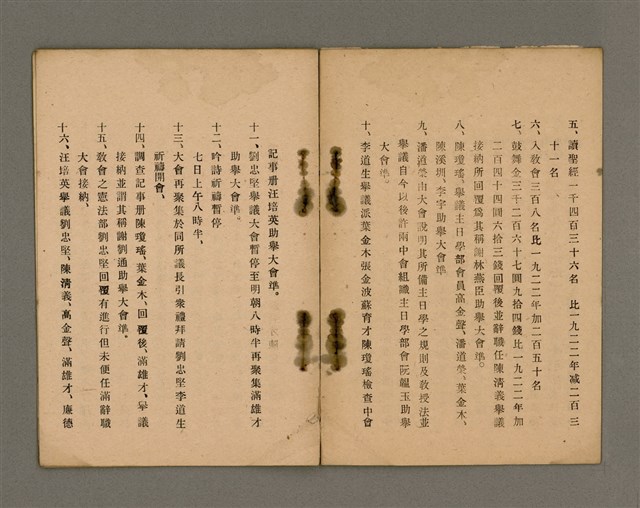 五、讀聖經一千四百三十六名 比一九二二年减二百三
十一名
六、入敎會三百八名比一九二二年加二百五十名
七、鼓舞金三千二百六十七圓九拾四錢比一九二二年加
二百四十四圓六拾三錢回覆後並辭職任陳淸義舉議
接納所回覆爲其稱謝林燕臣助舉大會準。
八、陳瓊琚舉議主日學部會員高金聲、潘道榮、葉金木、
陳溪圳、李宇助舉大會準。
九、潘道榮由大會說明其所備主日學之規則及敎授法並
舉議自今以後許兩中會組織主日學部會阮鰮玉助舉
大會準。
十、李道生舉議派葉金木張金波蘇育才陳瓊瑤檢查中會
記事册汪培英助舉大會準。
十一、劉忠堅舉議大會暫停至明朝八時半再聚集滿雄才
助舉大會準。
十二、吟詩祈禱暫停
七日上午八時半、
十三、大會再聚集於同所議長引衆禮拜請劉忠堅李道生
祈禱開會、
十四、調查記事册陳瓊瑤、葉金木、回覆後、滿雄才、舉議
接納並謂其稱謝劉通助舉大會準。
十五、敎會之憲法部劉忠堅回覆有進行但未便任滿辭職
大會接納、
十六、汪培英舉議劉忠堅、陳淸義、高金聲、滿雄才、廉德